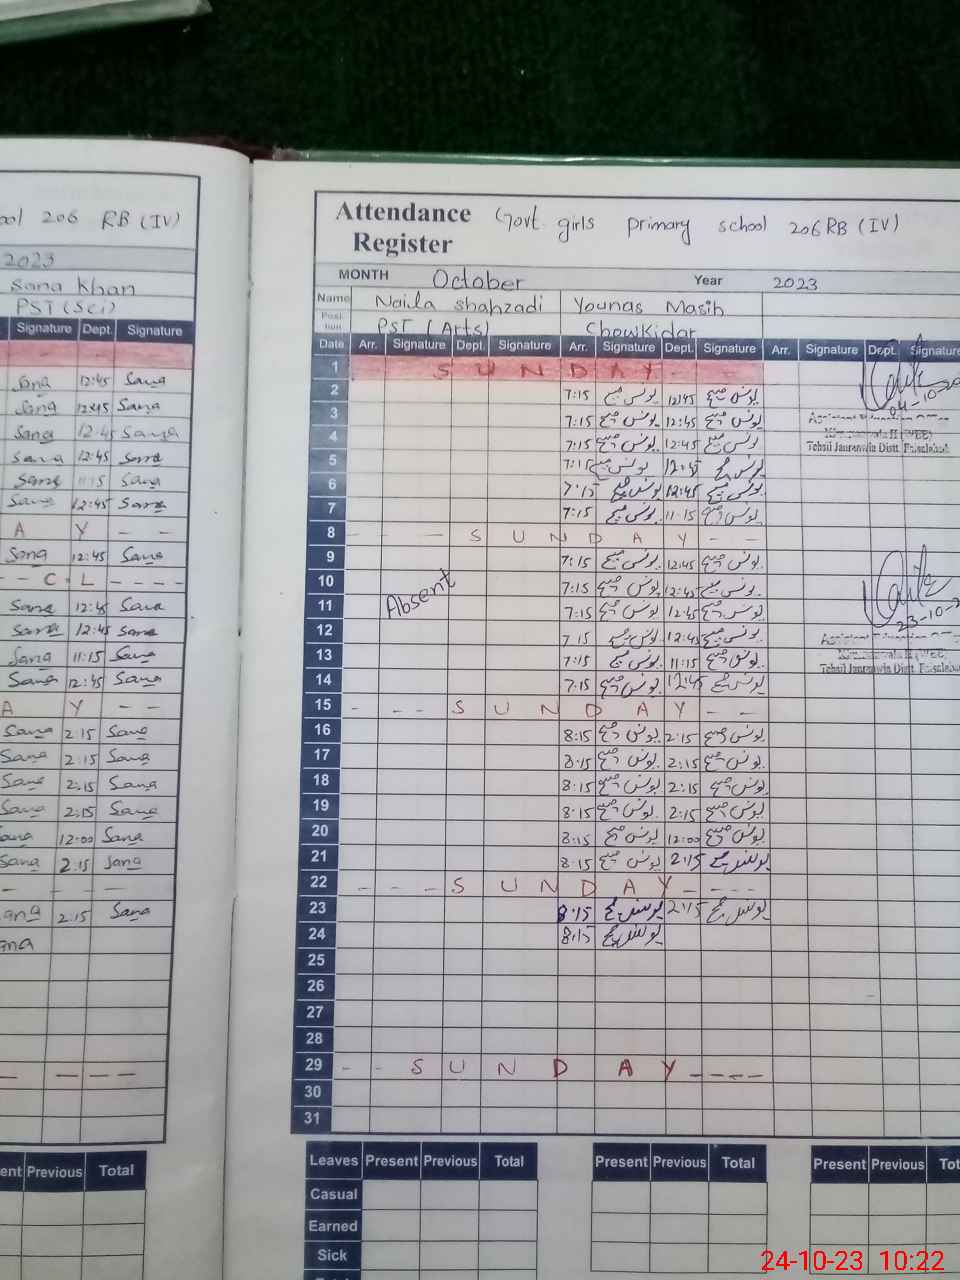 ool 206 RB (IV)
2023
Sana Khan
PST (Sci)
Signature Dept. Signature
Sana 12:45 Sana
Sana 12:45 Sana
Sana 12:45 Sana
Sana 12:45 Sana
Sana 11:15 Sana
Sana 12:45 Sana
A Y - -
Sana 12:45 Sana
- - C L - - - -
Sana 12:45 Sana
Sana 12:45 Sana
Sana 11:15 Sana
Sana 12:45 Sana
A Y - -
Sana 2:15 Sana
Sana 2:15 Sana
Sana 2:15 Sana
Sana 2:15 Sana
Sana 12:00 Sana
Sana 2:15 Sana
- - - -
ana 2:15 Sana
ana
- - - -
ent Previous Total
Attendance Govt. girls primary school 206 RB (IV)
Register
MONTH October Year 2023
Name Naila shahzadi Younas Masih
Position PST (Arts) Chowkidar
Date Arr. Signature Dept. Signature Arr. Signature Dept. Signature Arr. Signature Dept. Signature
1 S U N D A Y - -
2 7:15 یونس مسیح 12:45 یونس مسیح
3 7:15 یونس مسیح 12:45 یونس مسیح
4 7:15 یونس مسیح 12:45 یونس مسیح
5 7:15 یونس مسیح 12:45 یونس مسیح
6 7:15 یونس مسیح 12:45 یونس مسیح
7 7:15 یونس مسیح 11:15 یونس مسیح
8 - - - S U N D A Y - -
9 7:15 یونس مسیح 12:45 یونس مسیح
10 7:15 یونس مسیح 12:45 یونس مسیح
11 Absent 7:15 یونس مسیح 12:45 یونس مسیح
12 7:15 یونس مسیح 12:45 یونس مسیح
13 7:15 یونس مسیح 11:15 یونس مسیح
14 7:15 یونس مسیح 12:45 یونس مسیح
15 - - - S U N D A Y - -
16 8:15 یونس مسیح 2:15 یونس مسیح
17 8:15 یونس مسیح 2:15 یونس مسیح
18 8:15 یونس مسیح 2:15 یونس مسیح
19 8:15 یونس مسیح 2:15 یونس مسیح
20 8:15 یونس مسیح 12:00 یونس مسیح
21 8:15 یونس مسیح 2:15 یونس مسیح
22 - - - S U N D A Y - - - -
23 8:15 یونس مسیح 2:15 یونس مسیح
24 8:15 یونس مسیح
25
26
27
28
29 - - S U N D A Y - - - -
30
31
04-10-20
Assistant Education
Tehsil Jaranwala Distt Faisalabad
23-10-2
Assistant Education
Tehsil Jaranwala Distt Faisalabad
Leaves Present Previous Total Present Previous Total Present Previous Tot
Casual
Earned
Sick
24-10-23 10:22